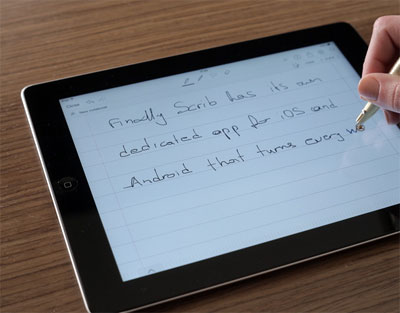 Finally Scrib has its own
dedicated app for iOS and
Android that turns every w